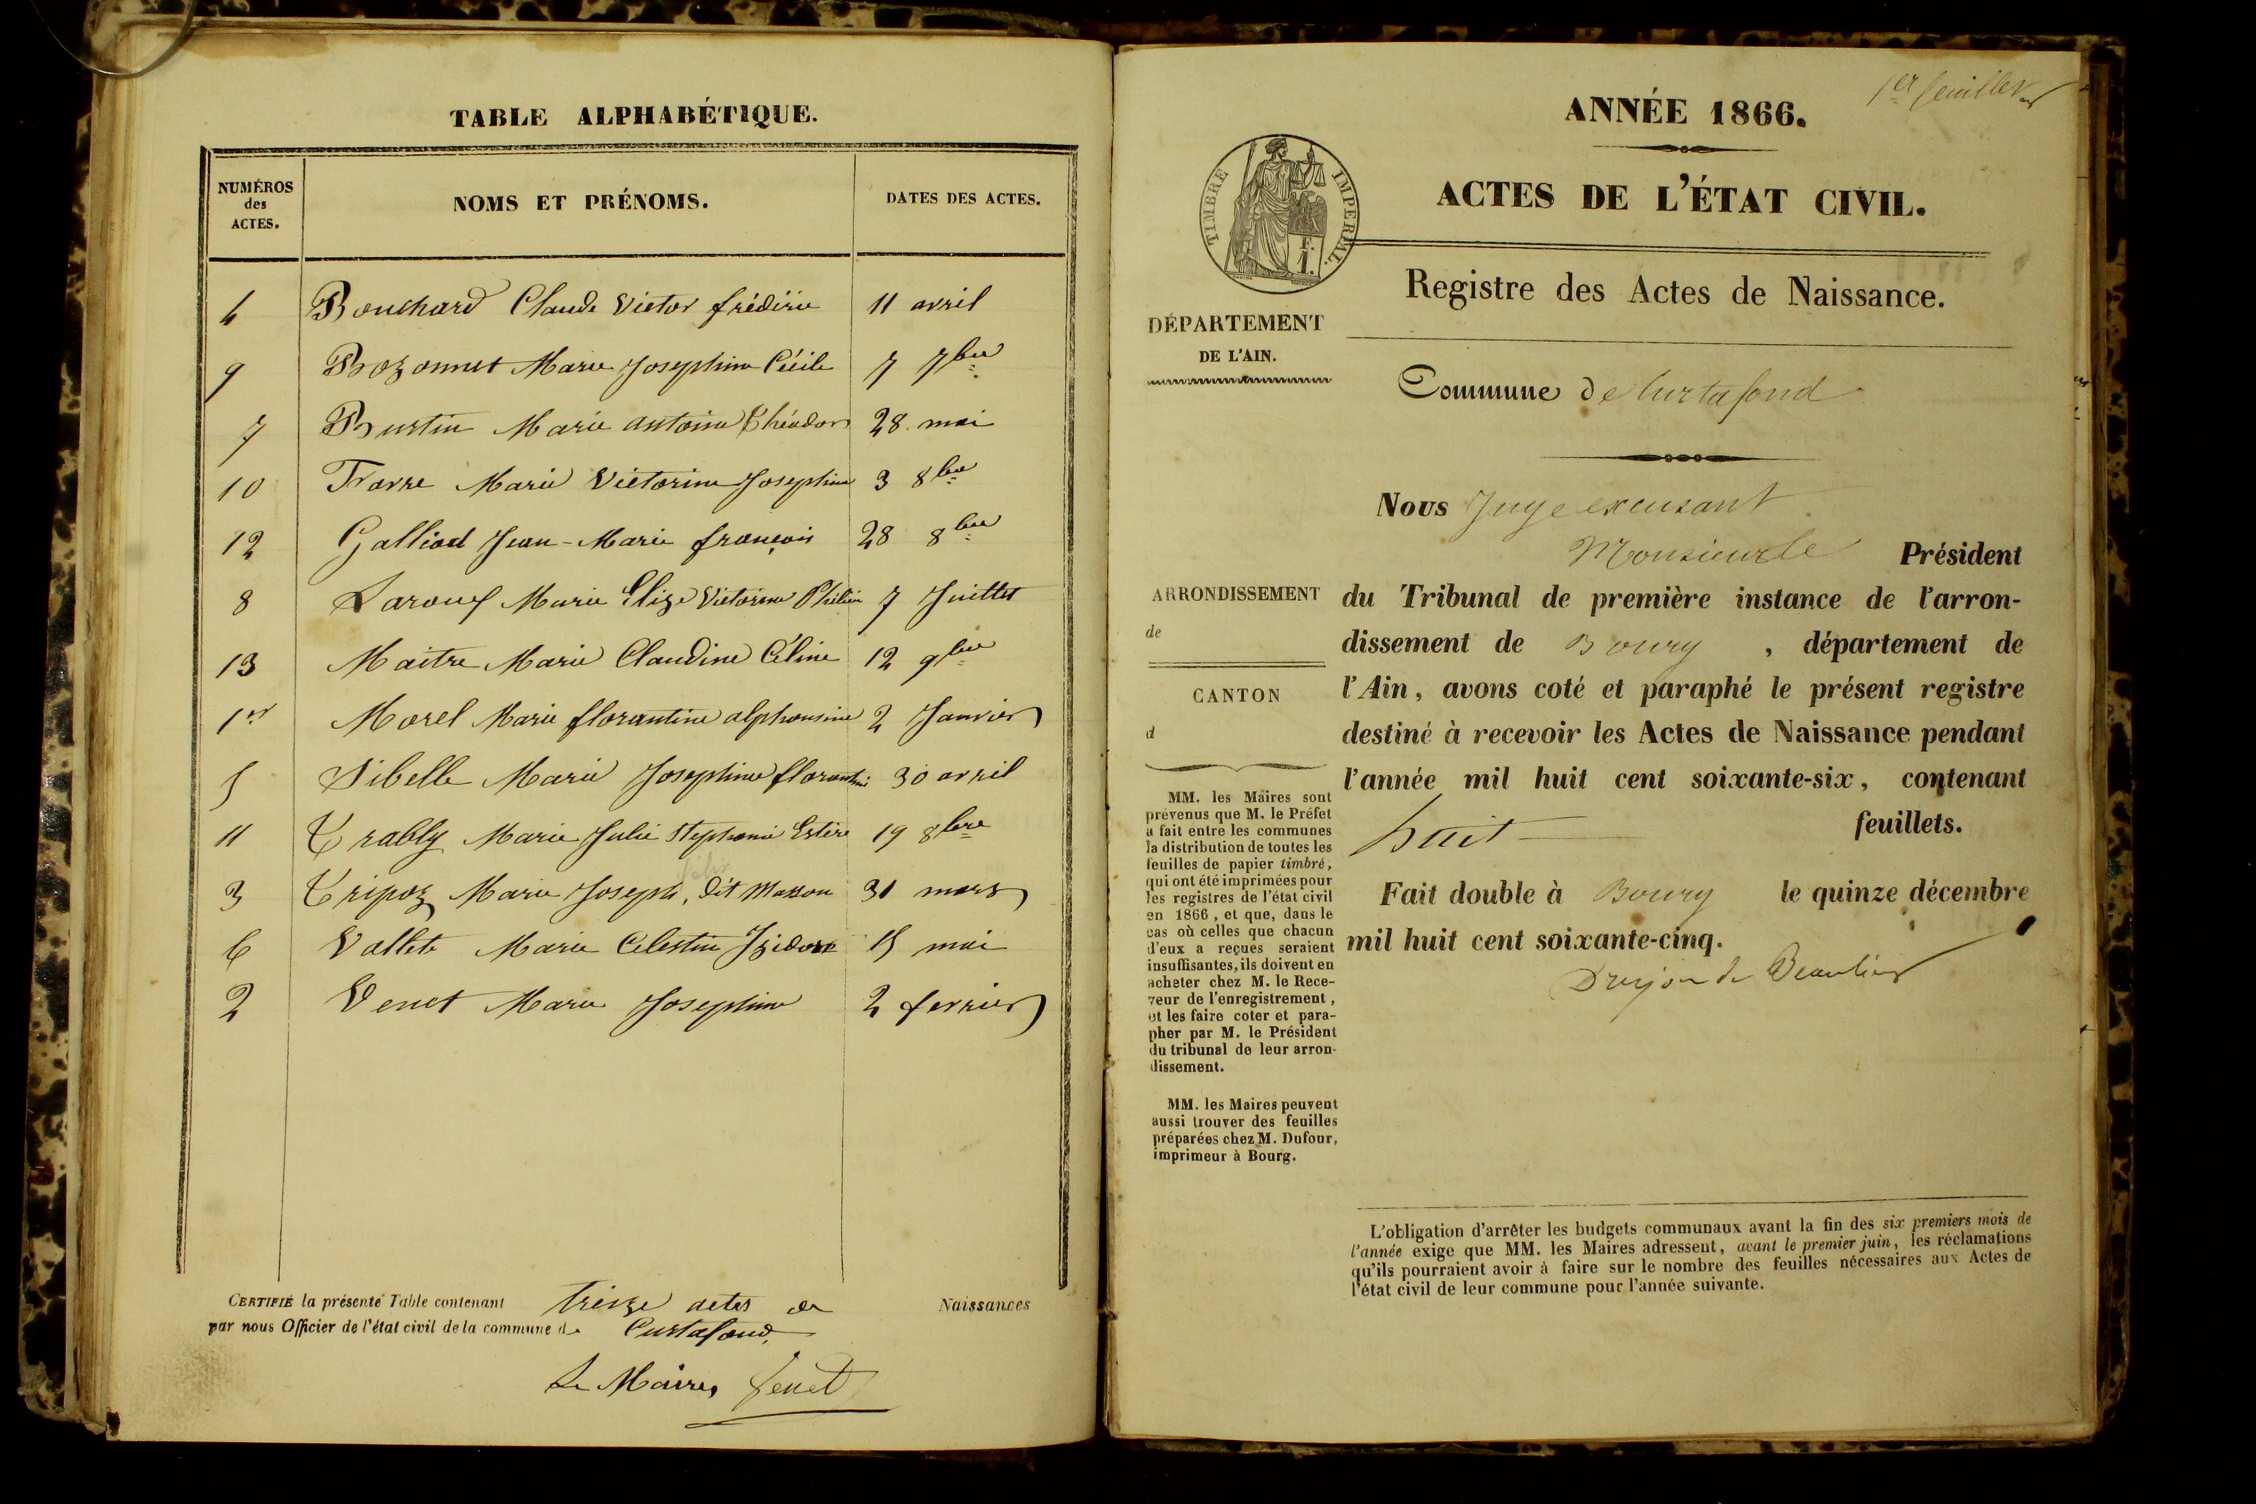 TABLE ALPHABÉTIQUE.
NUMÉROS des ACTES. NOMS ET PRÉNOMS. DATES DES ACTES.
4 Bouchard Claude Victor frédéric 11 avril
9 Bozonnet Marie Josephine Cécile 7 7bre
7 Bustin Marie antoine théodore 28 mai
10 Marie Victorine Josephine 3 8bre
12 Galliod Jean-Marie françois 28 8bre
8 Marie Elize Victorine 7 Juillet
13 Maitre Marie Claudine Céline 12 9bre
1er Morel Marie florantine alphonsine 2 Janvier
5 Sibelle Marie Josephine florantine 30 avril
11 Trably Marie Julie Stephanie Estère 19 8bre
3 Tripoz Marie Joseph, dit Masson 31 mars
6 Vallet Marie Celestin Izidore 15 mai
2 Venet Marie Josephine 2 fevrier
CERTIFIÉ la présente Table contenant treize actes de Naissances
par nous Officier de l'état civil de la commune de Curtafond.
Le Maire, Venet
1er feuillet
ANNÉE 1866.
TIMBRE IMPERIAL.
ACTES DE L'ÉTAT CIVIL.
Registre des Actes de Naissance.
DÉPARTEMENT
DE L'AIN.
Commune de Curtafond
Nous Juge excusant
Monsieur le Président
ARRONDISSEMENT
de
CANTON
d
du Tribunal de première instance de l'arron-
dissement de Bourg, département de
l'Ain, avons coté et paraphé le présent registre
destiné à recevoir les Actes de Naissance pendant
l'année mil huit cent soixante-six, contenant
huit feuillets.
Fait double à Bourg le quinze décembre
mil huit cent soixante-cinq.
Drujon de Beaulieu
MM. les Maires sont
prévenus que M. le Préfet
a fait entre les communes
la distribution de toutes les
feuilles de papier timbré,
qui ont été imprimées pour
les registres de l'état civil
en 1866, et que, dans le
cas où celles que chacun
d'eux a reçues seraient
insuffisantes, ils doivent en
acheter chez M. le Rece-
veur de l'enregistrement,
et les faire coter et para-
pher par M. le Président
du tribunal de leur arron-
dissement.
MM. les Maires peuvent
aussi trouver des feuilles
préparées chez M. Dufour,
imprimeur à Bourg.
L'obligation d'arrêter les budgets communaux avant la fin des six premiers mois de
l'année exige que MM. les Maires adressent, avant le premier juin, les réclamations
qu'ils pourraient avoir à faire sur le nombre des feuilles nécessaires aux Actes de
l'état civil de leur commune pour l'année suivante.